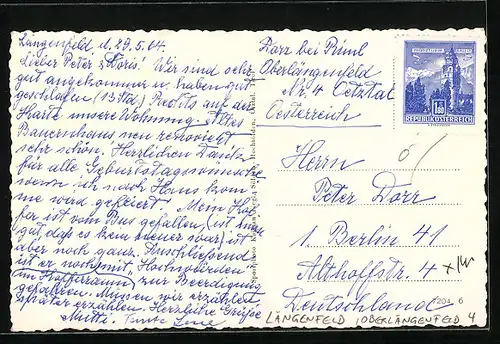 Längenfeld, d. 29.5.64.
Lieber Peter & Doris! Wir sind sehr
gut angekommen u. haben gut
geschlafen (13 Std.) Rechts auf der
Karte unsere Wohnung. Altes
Bauernhaus neu renoviert
sehr schön! Herzlichen Dank
für alle Geburtstagswünsche
wenn ich nach Haus kom-
me wird gefeiert. Mein Kof-
fer ist vom Bus gefallen, (ist
gut, daß es kein neuer war) ist
aber noch ganz. Anschließend
ist er noch mit "Hochwürden"
(im Kofferraum) zur Beerdigung
gefahren. Müssen wir erzählen
später erzählen. Herzliche Grüße
Mutti. Tante Lene
Dorr bei Prünl
Oberlängenfeld
Nr. 4 Oetztal
Oesterreich
REPUBLIK ÖSTERREICH
Herrn
Peter Dorr
1 Berlin 41
Althoffstr. 4
Deutschland
204 6
LÄNGENFELD (OBERLÄNGENFELD 4